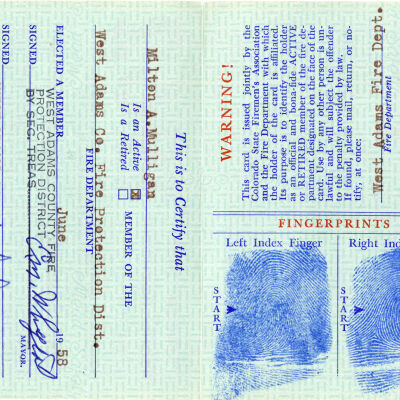 This is to Certify that
Milton A. Mulligan
Is an Active ☒
Is a Retired ☐
MEMBER OF THE
West Adams Co. Fire Protection Dist.
FIRE DEPARTMENT
ELECTED A MEMBER June 1958
WEST ADAMS COUNTY FIRE
PROTECTION DISTRICT
BY SEC. TREAS.
SIGNED
MAYOR.
SIGNED
WARNING!
This card is issued jointly by the
Colorado State Firemen's Association
and the Fire Department with which
the holder of the card is affiliated.
Its purpose is to identify the holder
as an official and bona-fide ACTIVE
or RETIRED member of the fire de-
partment designated on the face of the
card. Use by any other person is un-
lawful and will subject the offender
to the penalty provided by law.
If found, please mail, return, or no-
tify, at once:
West Adams Fire Dept.
Fire Department
FINGERPRINTS
Left Index Finger
Right Ind
START
START